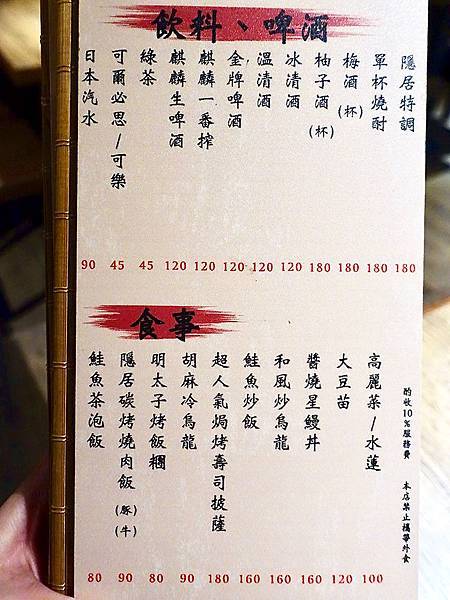 飲料、啤酒
隱居特調
單杯燒酎
梅酒(杯)
柚子酒(杯)
冰清酒
溫清酒
金牌啤酒
麒麟一番搾
麒麟生啤酒
綠茶
可爾必思/可樂
日本汽水
90 45 45 120 120 120 120 120 180 180 180 180
食事
高麗菜/水蓮
大豆苗
醬燒星鰻丼
和風炒烏龍
鮭魚炒飯
超人氣焗烤壽司披薩
胡麻冷烏龍
明太子烤飯糰
隱居碳烤燒肉飯(豚)(牛)
鮭魚茶泡飯
80 90 80 90 180 160 160 160 120 100
酌收10%服務費 本店禁止攜帶外食